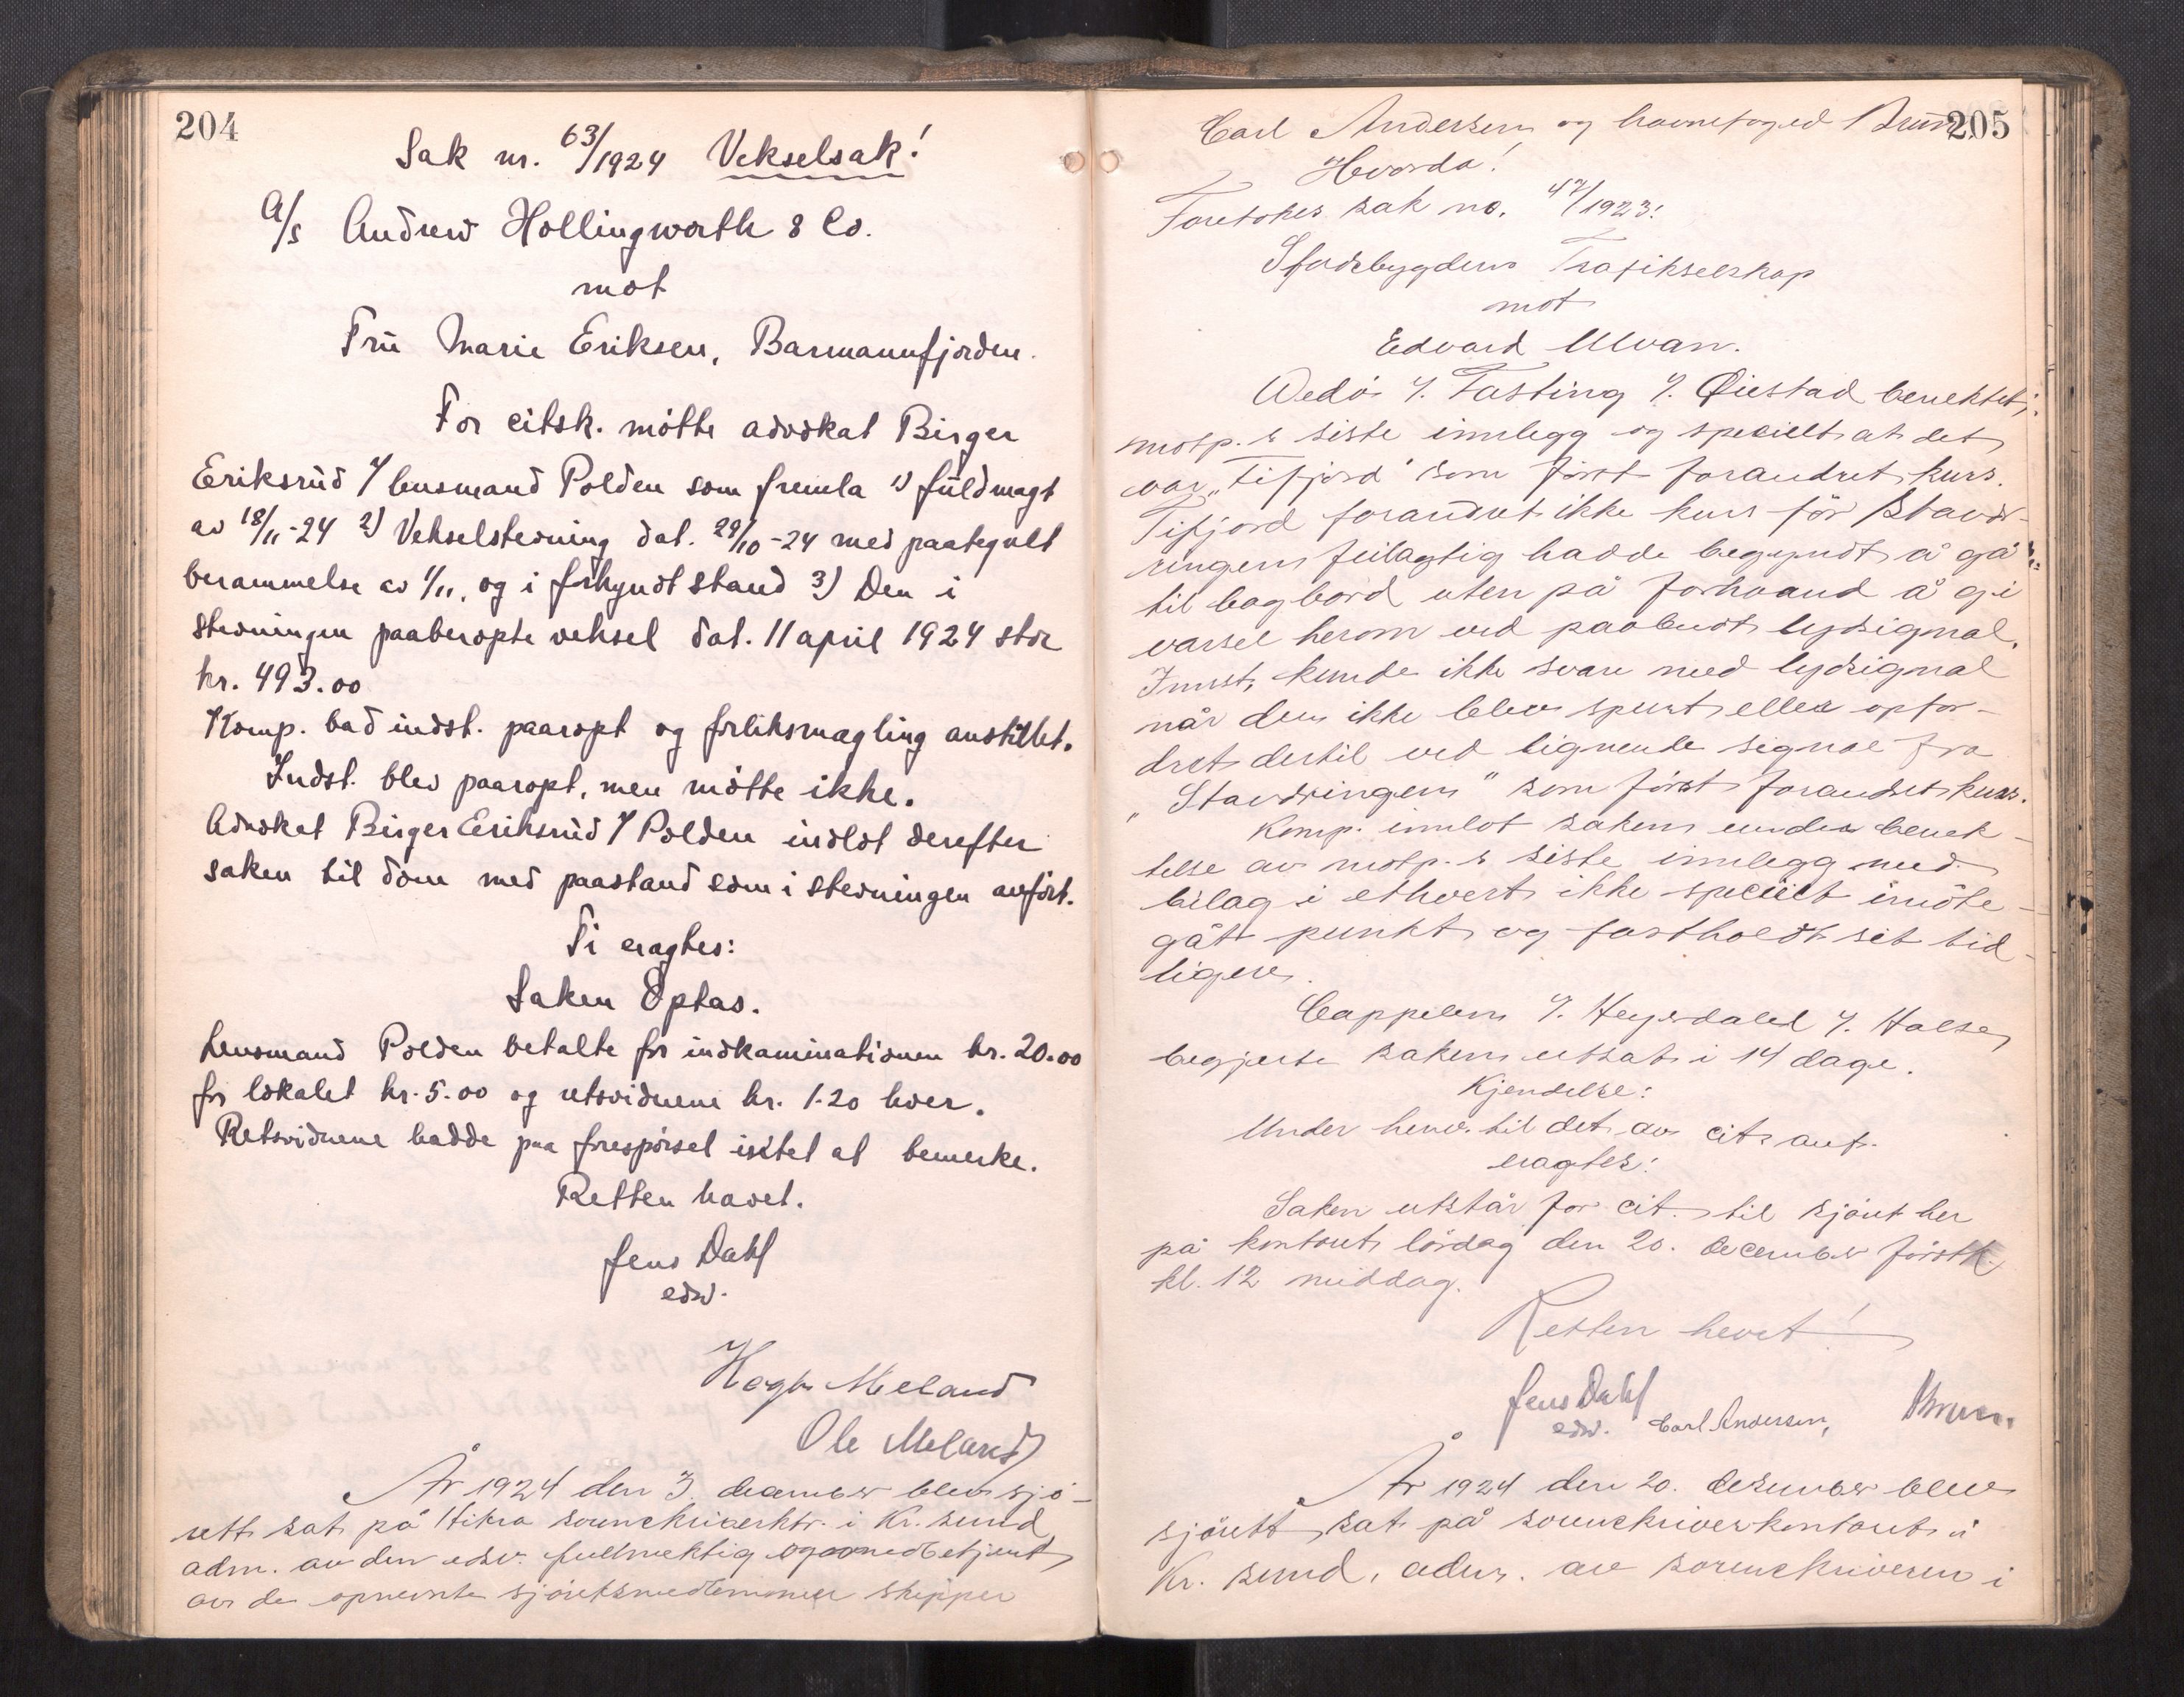 204
Sak nr. 63/1924 Vekselsak!
A/s Andrew Hollingworth & Co.
mot
Frü Marie Eriksen, Barmannfjorden.
For citsk. mötte advokat Birger
Eriksrüd / lensmand Polden som fremla 1) füldmagt
av 18/11-24 2) Vekselstevning dat. 29/10-24 med paategnet
berammelse av 1/11, og i forkyndt stand 3) Den i
stevningen paaberopte veksel dat. 11 april 1924 stor
kr. 493.00
Komp. bad indst. paaropt og forliksmægling anstillet.
Indst. blev paaropt, men mötte ikke.
Advokat Birger Eriksrüd / Polden indlot derefter
saken til dom med paastand som i stevningen anfört.
Ti eragtes:
Saken Optas.
Lensmand Polden betalte for indkaminationen kr. 20.00
for lokalet kr. 5.00 og retsvidnene kr. 1.20 hver.
Retsvidnene hadde paa forespörsel intet at bemerke.
Retten hævet.
Jens Dahl
edsv.
Hagb. Meland
Ole Meland
År 1924 den 3. december blev sjö-
rett sat på Hitra sorenskriverktr. i Kr. sund,
adm. av den edsv. fullmektig og medbetjent
av de opnevnte sjöretsmedlemmer skipper
205
Carl Andersen og havnefoged Brun
Hvorda!
Foretokes sak no. 47/1923:
Stadsbygdens Trafikselskap
mot
Edvard Ulvan.
Wedö /. Fasting /. Öiestad benektet
motp.s siste innlegg og specielt at det
var „Tifjord" som först forandret kurs.
Tifjord forandret ikke kurs för Stavær-
ringen feilagtig hadde begyndt å gå
til bagbord uten på forhaand å gi
varsel herom ved paabudt lydsignal.
Innst. kunde ikke svare med lydsignal
når den ikke blev spurt eller opfor-
dret dertil ved lignende signal fra
„Staværingen" som först forandret kurs.
Komp. innlot saken under benek-
telse av motp.s siste innlegg med
bilag i ethvert ikke specielt imöte-
gåt punkt og fastholdt sit tid-
ligere.
Cappelen /. Heyerdahl /. Halse
begjerte saken utsat i 14 dage.
Kjendelse:
Under henv. til det av cit. anf.
eragtes:
Saken utstår for cit. til sjöret her
på kontoret lördag den 20. december förstk.
kl. 12 middag.
Retten hevet!
Jens Dahl
edsv. Carl Andersen, Brun
År 1924 den 20. desember blev
sjörett sat på sorenskriverkontoret i
Kr. sund, adm. av sorenskriveren i